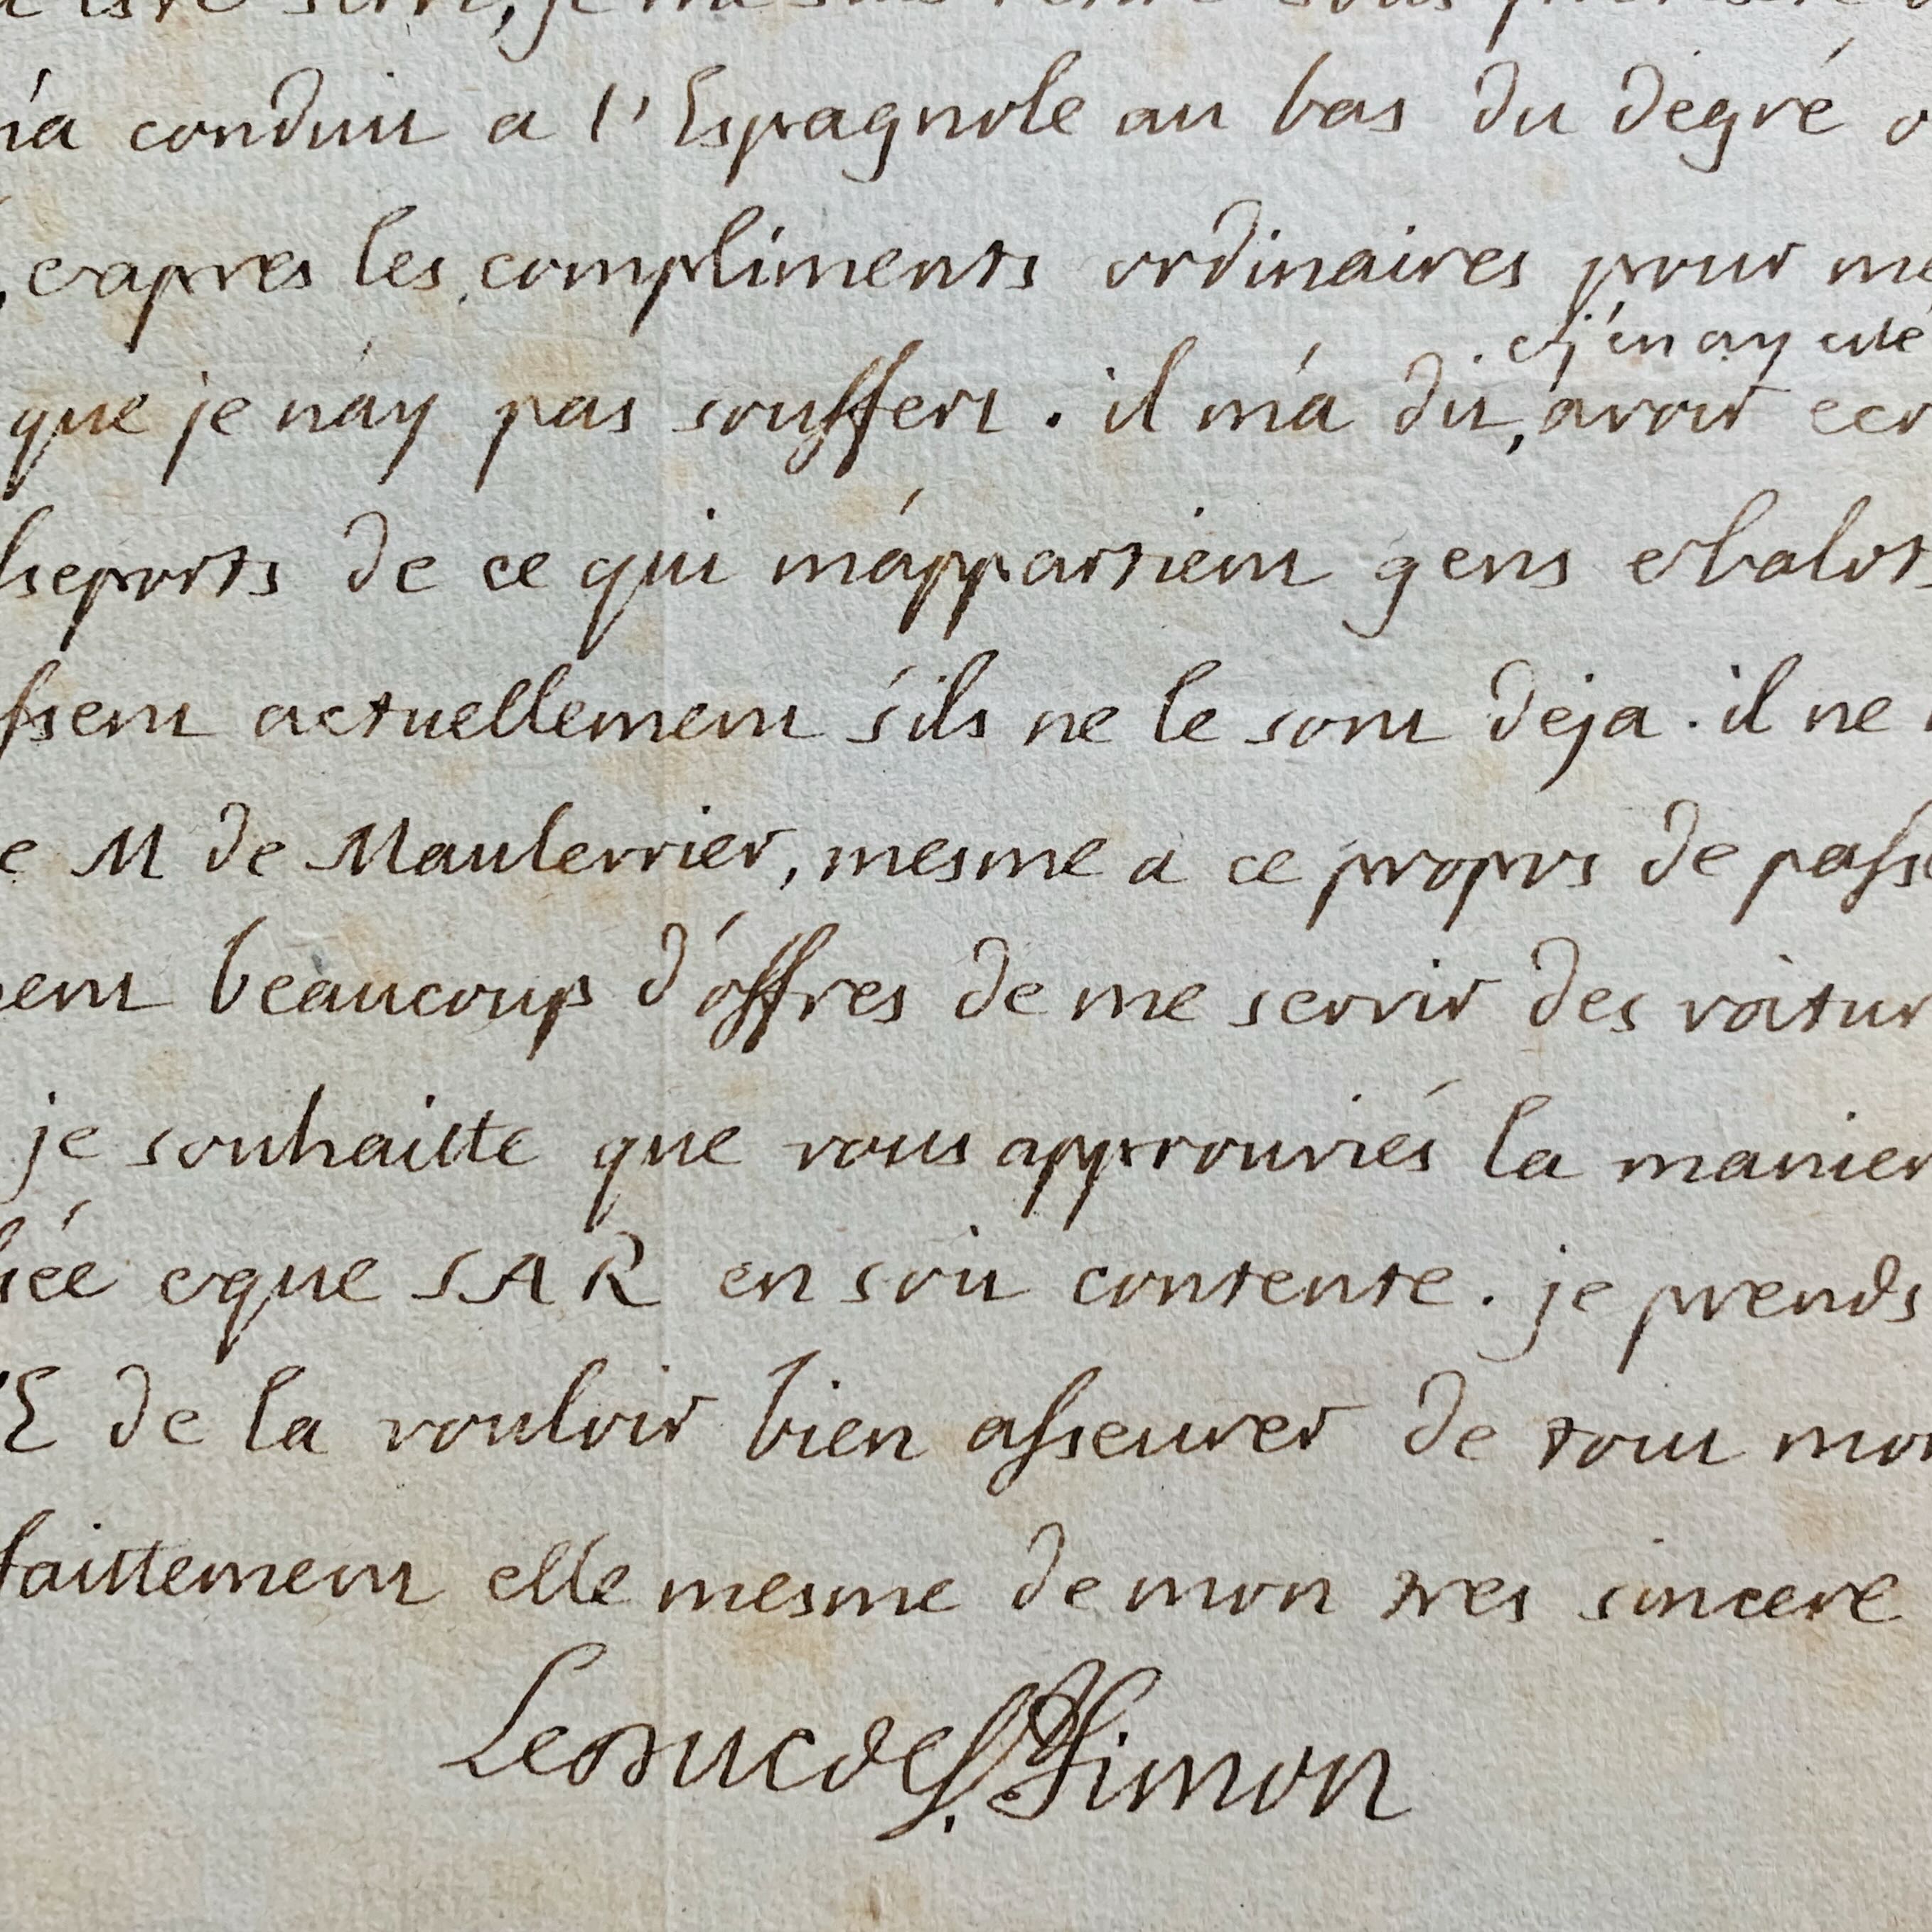 m'a conduit a l'Espagnole au bas du degré
, et apres les compliments ordinaires pour me
et j'en ay esté
que je n'ay pas souffert. il m'a dit, avoir ecr
sseports de ce qui m'appartient gens et balots
ssent actuellement s'ils ne le sont deja. il ne
e M de Maulevrier, mesme a ce propos de passe
ent beaucoup d'offres de me servir des voitur
je souhaitte que vous approuviés la manier
ée et que SAR en soit contente. je prends
E de la vouloir bien asseurer de tout mon
faittement elle mesme de mon tres sincere
Le duc de S. Simon